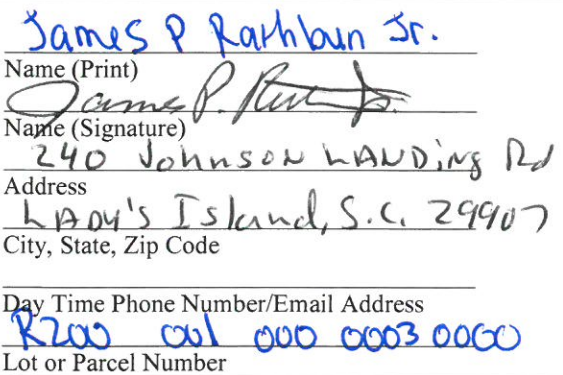 James P Rathbun Jr.
Name (Print)
James P. Jr.
Name (Signature)
240 Johnson LANDiNg Rd
Address
LADY'S Island, S.C. 29907
City, State, Zip Code
Day Time Phone Number/Email Address
R200 001 000 0003 0000
Lot or Parcel Number